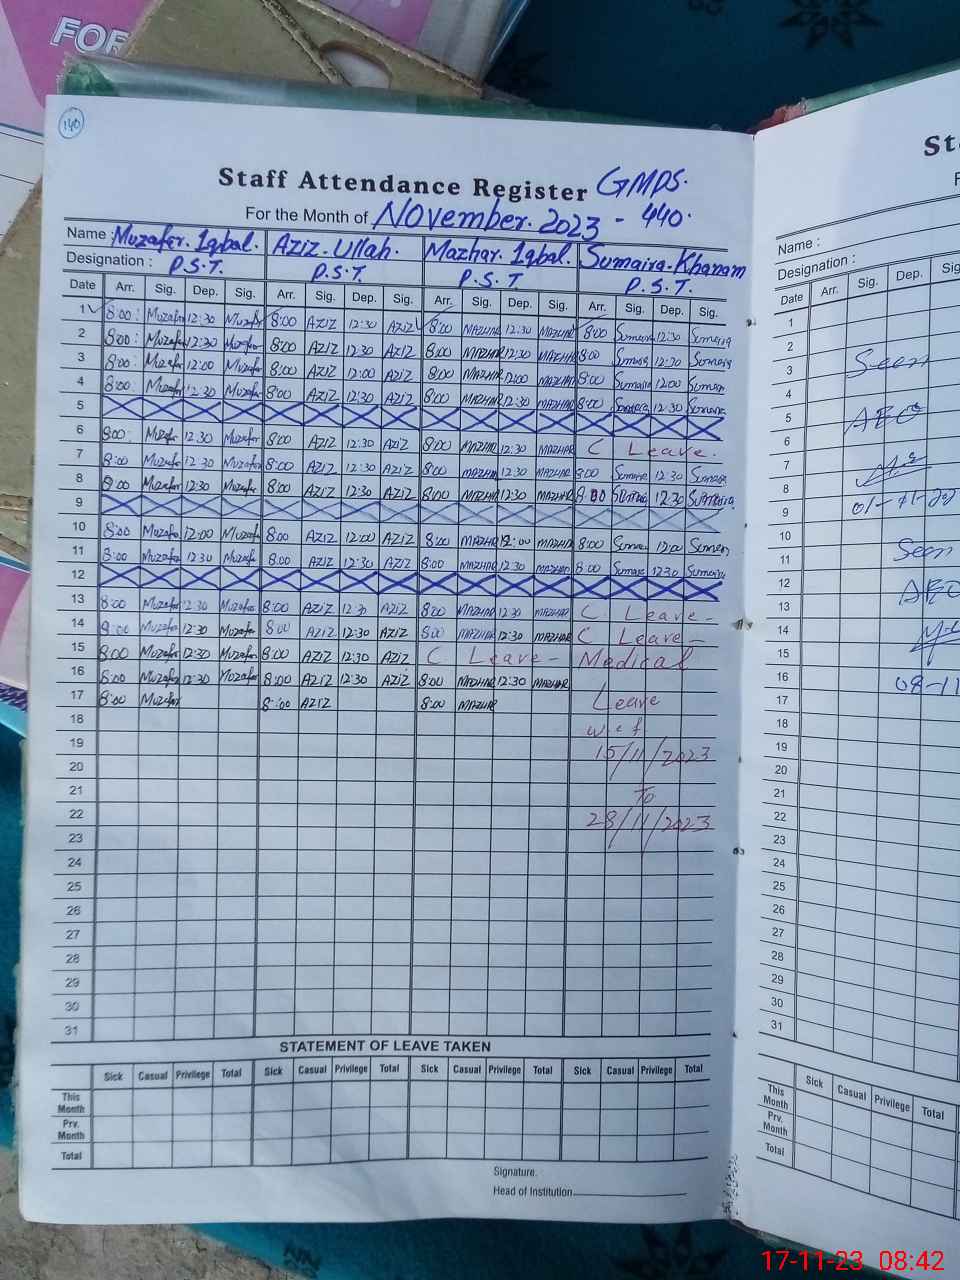 FOR
140
Staff Attendance Register GMPS.
For the Month of November. 2023 - 440.
Name : Muzafar. Iqbal. Aziz. Ullah. Mazhar. Iqbal. Sumaira. Khanam
Designation : P.S.T. P.S.T. P.S.T P.S.T.
Date Arr. Sig. Dep. Sig. Arr. Sig. Dep. Sig. Arr. Sig. Dep. Sig. Arr. Sig. Dep. Sig.
1 8:00 Muzafar 12:30 Muzafar 8:00 AZIZ 12:30 AZIZ 8:00 MAZHAR 12:30 MAZHAR 8:00 Sumaira 12:30 Sumaira
2 8:00 Muzafar 12:30 Muzafar 8:00 AZIZ 12:30 AZIZ 8:00 MAZHAR 12:30 MAZHAR 8:00 Sumaira 12:30 Sumaira
3 8:00 Muzafar 12:00 Muzafar 8:00 AZIZ 12:00 AZIZ 8:00 MAZHAR 12:00 MAZHAR 8:00 Sumaira 12:00 Sumaira
4 8:00 Muzafar 12:30 Muzafar 8:00 AZIZ 12:30 AZIZ 8:00 MAZHAR 12:30 MAZHAR 8:00 Sumaira 12:30 Sumaira
5
6 8:00 Muzafar 12:30 Muzafar 8:00 AZIZ 12:30 AZIZ 8:00 MAZHAR 12:30 MAZHAR C Leave.
7 8:00 Muzafar 12:30 Muzafar 8:00 AZIZ 12:30 AZIZ 8:00 MAZHAR 12:30 MAZHAR 8:00 Sumaira 12:30 Sumaira
8 8:00 Muzafar 12:30 Muzafar 8:00 AZIZ 12:30 AZIZ 8:00 MAZHAR 12:30 MAZHAR 8:00 Sumaira 12:30 Sumaira
9
10 8:00 Muzafar 12:00 Muzafar 8:00 AZIZ 12:00 AZIZ 8:00 MAZHAR 12:00 MAZHAR 8:00 Sumaira 12:00 Sumaira
11 8:00 Muzafar 12:30 Muzafar 8:00 AZIZ 12:30 AZIZ 8:00 MAZHAR 12:30 MAZHAR 8:00 Sumaira 12:30 Sumaira
12
13 8:00 Muzafar 12:30 Muzafar 8:00 AZIZ 12:30 AZIZ 8:00 MAZHAR 12:30 MAZHAR C. Leave -
14 8:00 Muzafar 12:30 Muzafar 8:00 AZIZ 12:30 AZIZ 8:00 MAZHAR 12:30 MAZHAR C Leave -
15 8:00 Muzafar 12:30 Muzafar 8:00 AZIZ 12:30 AZIZ C Leave - Medical
16 8:00 Muzafar 12:30 Muzafar 8:00 AZIZ 12:30 AZIZ 8:00 MAZHAR 12:30 MAZHAR
17 8:00 Muzafar 8:00 AZIZ 8:00 MAZHAR Leave
18 w.e.f.
19 15/11/2023
20
21 To
22 28/11/2023
23
24
25
26
27
28
29
30
31
STATEMENT OF LEAVE TAKEN
Sick Casual Privilege Total Sick Casual Privilege Total Sick Casual Privilege Total Sick Casual Privilege Total
This Month
Prv. Month
Total
Signature.
Head of Institution
St
F
Name :
Designation :
Date Arr. Sig. Dep. Sig
1
2
3 Seen
4
5 AEO
6
7
8
9 01-11-202
10
11 Seen
12 AEO
13
14
15
16 08-11
17
18
19
20
21
22
23
24
25
26
27
28
29
30
31
Sick Casual Privilege Total
This Month
Prv. Month
Total
17-11-23 08:42